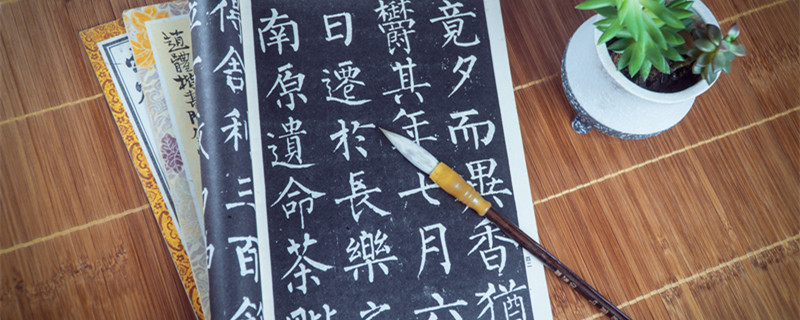 竟夕而異香猶
鬱其年七月六
日遷於長樂之
南原遺命荼
得舍利三百